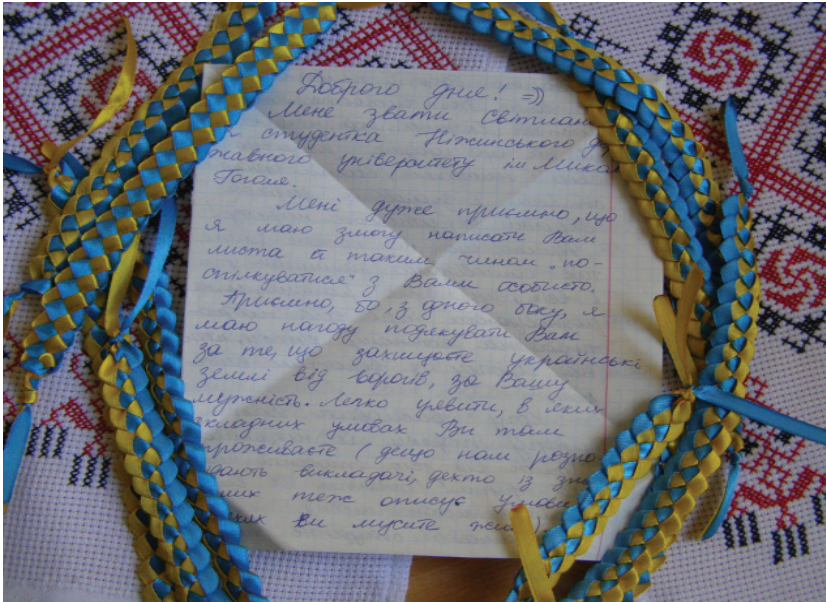 Доброго дня! =))
Мене звати Світлан
студентка Ніжинського де
жавного університету ім Мико
Гоголя.
Мені дуже приємно, що
я маю змогу написати Вам
листа й таким чином „по-
спілкуватися" з Вами особисто.
Приємно, бо, з одного боку, я
маю нагоду подякувати Вам
за те, що захищаєте українські
землі від ворогів, за Вашу
мужність. Легко уявити, в яких
складних умовах Ви там
проживаєте (дещо нам розпо
вають викладачі, дехто із зна
мих теж описує умови
яких ви мусите жити)